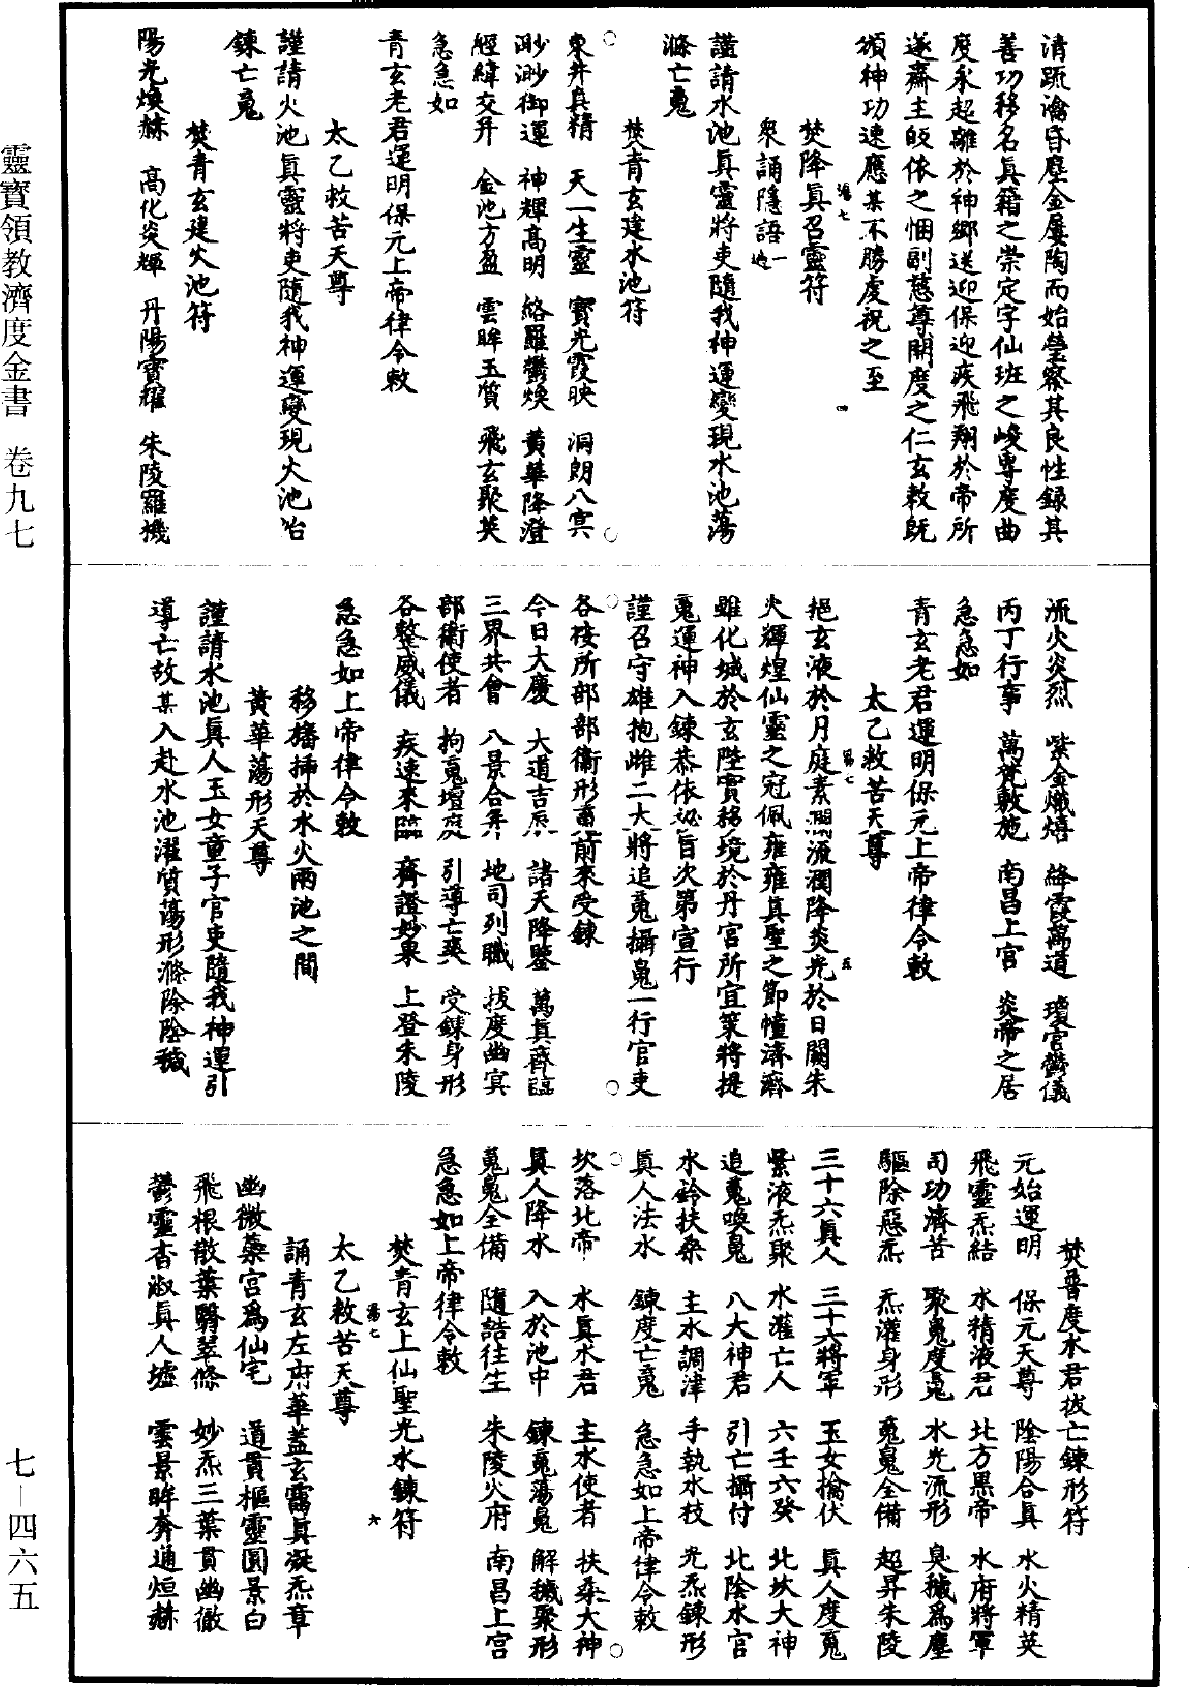 清疏瀹昏塵金屢陶而始瑩察其良性錄其
善功移名眞籍之崇定字仙班之峻專度曲
度永超離於神鄉送迎保迎疾飛翔於帝所
遂齋主皈依之悃副慈尊開度之仁玄敕旣
頒神功速應某不勝虔祝之至
焚降眞召靈符
衆誦隱語一遍
謹請水池眞靈將吏隨我神運變現水池蕩
滌亡䰟
焚青玄建水池符
東井眞精　天一生靈　寶光霞映　洞朗八㝠
渺渺御運　神輝高明　絡羅鬱煥　黃華降澄
經緯交升　金池方盈　雲眸玉質　飛玄聚英
急急如
青玄老君運明保元上帝律令敕
太乙救苦天尊
謹請火池眞靈將吏隨我神運變現火池冶
鍊亡䰟
焚青玄建火池符
陽光煥赫　高化炎輝　丹陽寶耀　朱陵羅機
流火炎烈　紫金熾熺　絳霞萬道　瓊宮鬱儀
丙丁行事　萬梵敷施　南昌上宮　炎帝之居
急急如
青玄老君運明保元上帝律令敕
太乙救苦天尊
挹玄液於月庭素瀾流潤降炎光於日闕朱
火輝煌仙靈之冠佩雍雍眞聖之節幢濟濟
雖化城於玄陛實移境於丹宮所宜策將提
䰟運神入鍊恭依祕旨次第宣行
謹召守雄抱雌二大將追䰟攝䰟一行官吏
各按所部部衛形㽵前來受鍊
今日大慶　大道吉辰　諸天降鑒　萬眞齊臨
三界共會　八景合并　地司列職　拔度幽㝠
部衛使者　拘䰟壇庭　引導亡爽　受鍊身形
各整威儀　疾速來臨　齊證妙果　上登朱陵
急急如上帝律令敕
移旛揷於水火兩池之間
黃華蕩形天尊
謹請水池眞人玉女童子官吏隨我神運引
導亡故某入赴水池濯質蕩形滌除陰穢
焚普度水君拔亡鍊形符
元始運明　保元天尊　陰陽合眞　水火精英
飛靈炁結　水精液君　北方黑帝　水府將軍
司功濟苦　聚䰟度䰟　水光流形　臭穢爲塵
驅除惡炁　炁灌身形　䰟䰟全備　超昇朱陵
三十六眞人　三十六將軍　玉女擒伏　眞人度䰟
紫液炁聚　水灌亡人　六壬六癸　北坎大神
追䰟喚䰟　八大神君　引亡攝付　北陰水官
水鈴扶桑　主水調津　手執水枝　光炁鍊形
眞人法水　鍊度亡䰟　急急如上帝律令敕
坎落北帝　水眞水君　主水使者　扶桑大神
眞人降水　入於池中　鍊䰟蕩䰟　解穢聚形
䰟䰟全備　隨誥往生　朱陵火府　南昌上宮
急急如上帝律令敕
焚青玄上仙聖光水鍊符
太乙救苦天尊
誦青玄左府華蓋玄靄眞凝炁章
幽微蘂宮爲仙宅　道貫樞靈圓景白
飛根散葉翳翠條　妙炁三葉貫幽徹
鬱靈杳淑眞人墟　雲景眸奔通烜赫
靈寶領教濟度金書　卷九七
七—四六五